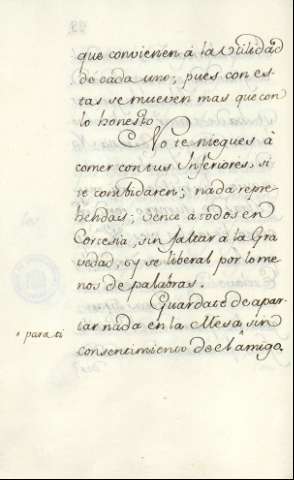 que convienen á la Utilidad
de cada uno; pues con es-
tas se mueven mas que con
lo honesto.
No te niegues á
comer con tus Inferiores, si
te combidaren; nada repre-
hendas; vence á todos en
Cortesia, sin faltar á la Gra-
vedad, y se liberal por lo me-
nos de palabras.
Guardate de apar-
tar nada en la Mesa, sin
^ para ti
consentimiento de el amigo.